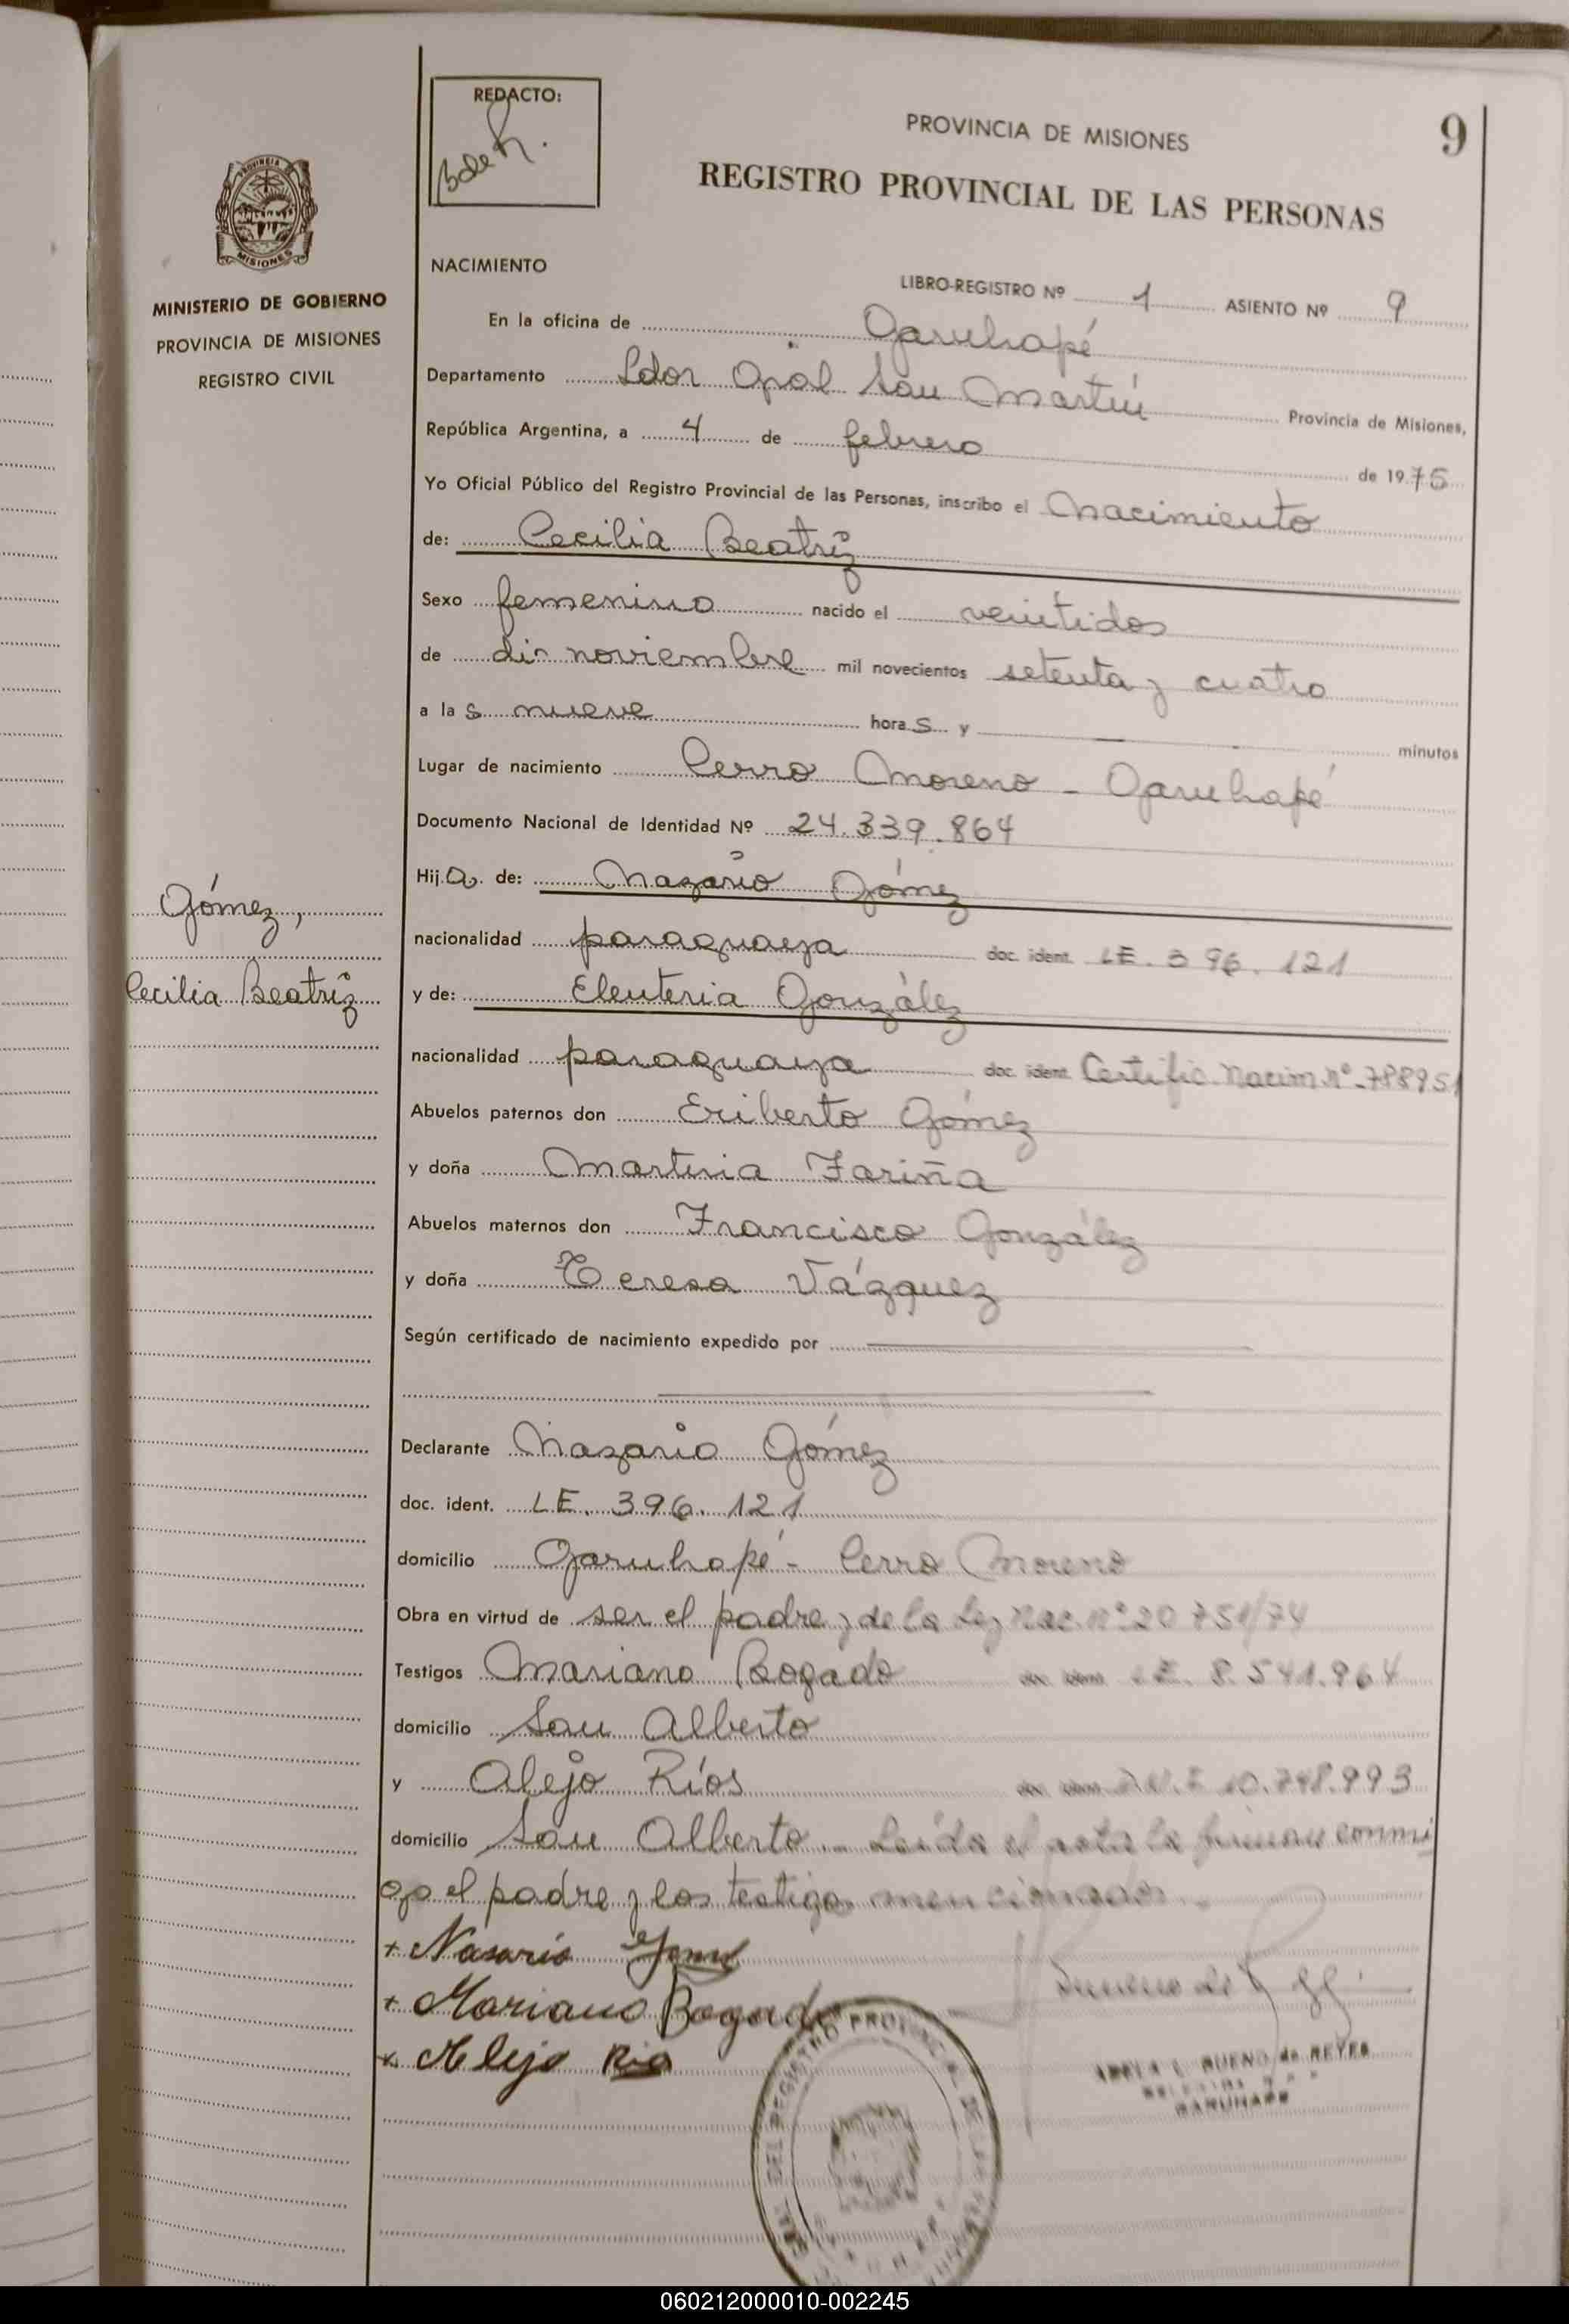 REDACTO:
B de R.
PROVINCIA DE MISIONES
9
REGISTRO PROVINCIAL DE LAS PERSONAS
MISIONES
MINISTERIO DE GOBIERNO
PROVINCIA DE MISIONES
REGISTRO CIVIL
NACIMIENTO
LIBRO-REGISTRO Nº 1 ASIENTO Nº 9
En la oficina de Garuhapé
Departamento Ldor Gral San Martín Provincia de Misiones,
República Argentina, a 4 de febrero de 1975
Yo Oficial Público del Registro Provincial de las Personas, inscribo el Nacimiento
de: Cecilia Beatriz
Sexo femenino nacido el veintidos
de noviembre mil novecientos setenta y cuatro
a las nueve horas y — minutos
Lugar de nacimiento Cerro Moreno - Garuhapé
Documento Nacional de Identidad Nº 24.339.864
Hija de: Nazario Gómez
Gómez,
nacionalidad paraguaya doc. ident. LE. 396.121
Cecilia Beatriz
y de: Eleuteria González
nacionalidad paraguaya doc. ident. Certific. Nacim. Nº 788951
Abuelos paternos don Eriberto Gómez
y doña Martina Fariña
Abuelos maternos don Francisco González
y doña Teresa Vázquez
Según certificado de nacimiento expedido por
Declarante Nazario Gómez
doc. ident. LE. 396.121
domicilio Garuhapé - Cerro Moreno
Obra en virtud de ser el padre y de la Ley Nac. Nº 20751/74
Testigos Mariano Bogado doc. ident. LE. 8.541.964
domicilio San Alberto
y Alejo Ríos doc. ident. D.N.I 10.748.993
domicilio San Alberto.- Leída el acta la firman conmi
go el padre y los testigos mencionados.-
+ Nasario Gomez
+ Mariano Bogado
x Alejo Rio
ADELA L. BUENO de REYES
GARUHAPE
060212000010-002245